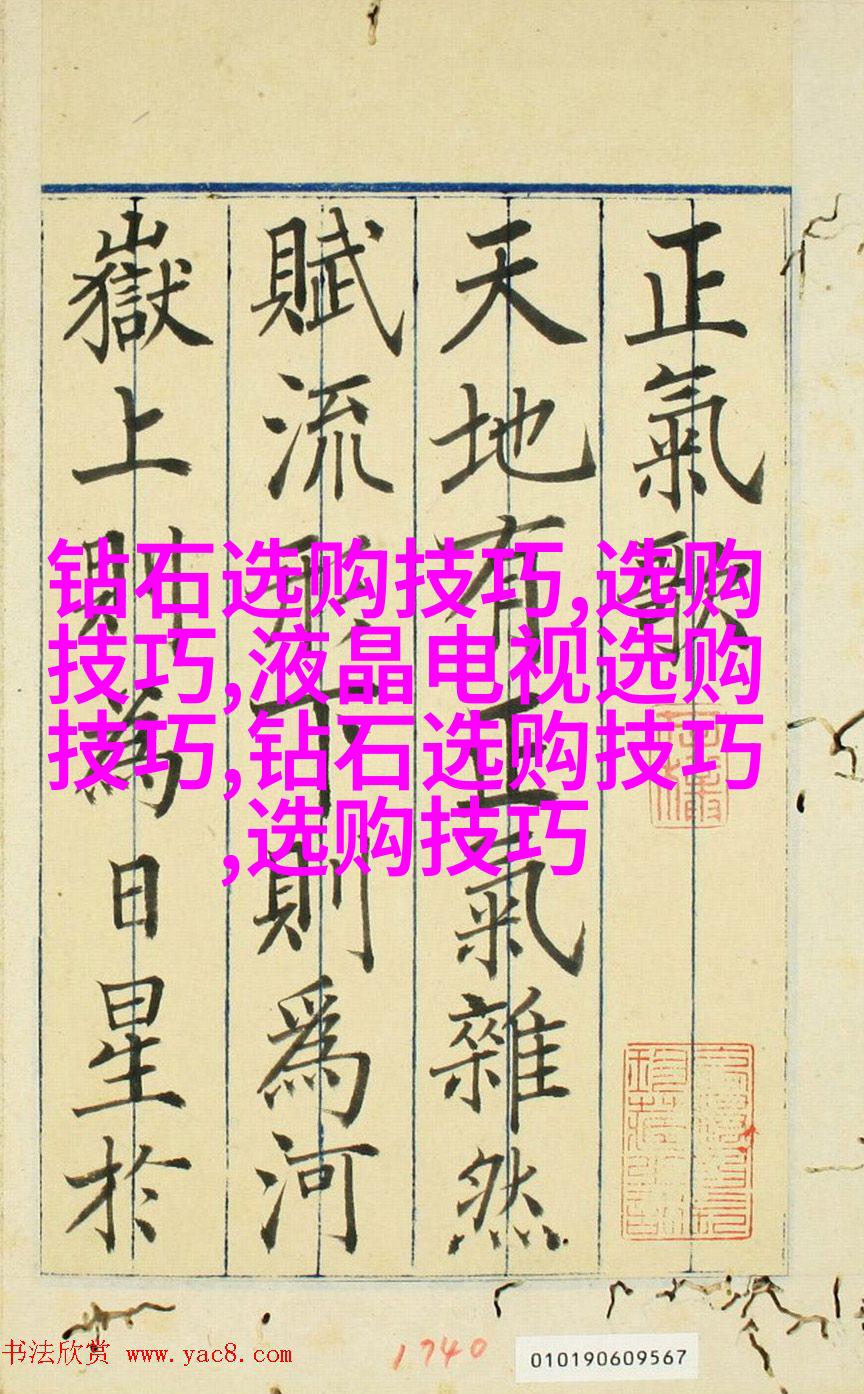 正氣歌
天地有正氣雜然
賦流形下則為河
嶽上則為日星於
钻石选购技巧,选购
技巧,液晶电视选购
技巧,钻石选购技巧
,选购技巧
书法欣赏 www.yac8.com
1740
010190609567